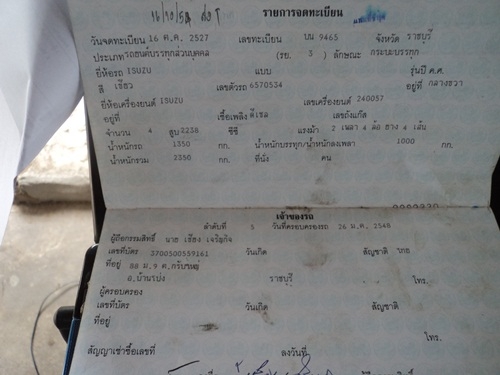 รายการจดทะเบียน
วันจดทะเบียน 16 ต.ค. 2527 เลขทะเบียน บน 9465 จังหวัด ราชบุรี
ประเภท รถยนต์บรรทุกส่วนบุคคล (รย. 3 ) ลักษณะ กระบะบรรทุก
ยี่ห้อรถ ISUZU แบบ รุ่นปี ค.ศ.
สี เขียว เลขตัวรถ 6570534 อยู่ที่ กลางขวา
ยี่ห้อเครื่องยนต์ ISUZU เลขเครื่องยนต์ 240057
อยู่ที่ เชื้อเพลิง ดีเซล เลขถังแก๊ส
จำนวน 4 สูบ 2238 ซีซี แรงม้า 2 เพลา 4 ล้อ ยาง 4 เส้น
น้ำหนักรถ 1350 กก. น้ำหนักบรรทุก/น้ำหนักลงเพลา 1000 กก.
น้ำหนักรวม 2350 กก. ที่นั่ง คน
เจ้าของรถ
ลำดับที่ 5 วันที่ครอบครองรถ 26 ม.ค. 2548
ผู้ถือกรรมสิทธิ์ นาย เชียง เจริญกิจ
เลขที่บัตร 3700500559161 วันเกิด สัญชาติ ไทย
ที่อยู่ 88 ม.9 ต.กรับใหญ่
อ.บ้านโป่ง ราชบุรี โทร.
ผู้ครอบครอง
เลขที่บัตร วันเกิด สัญชาติ
ที่อยู่
โทร.
สัญญาเช่าซื้อเลขที่ ลงวันที่